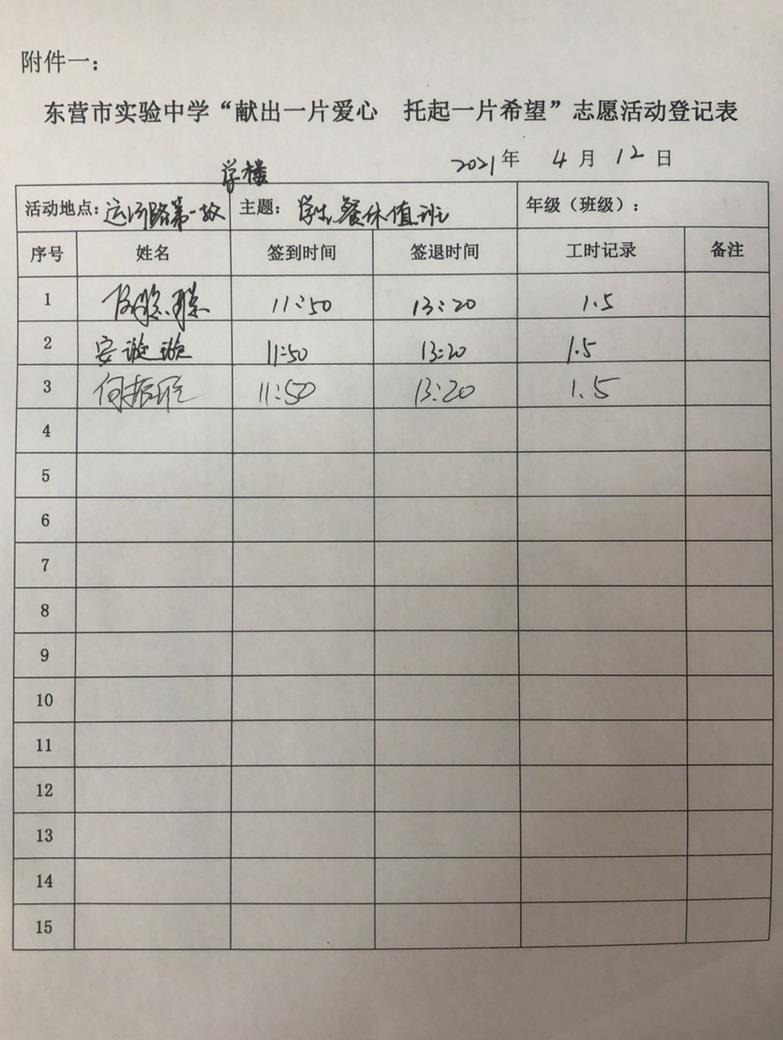 附件一：
东营市实验中学“献出一片爱心 托起一片希望”志愿活动登记表
2021年 4月 12日
学楼
活动地点：运河路第一教 主题：学生餐休值班 年级（班级）：
序号 姓名 签到时间 签退时间 工时记录 备注
1 11:50 13:20 1.5
2 安璇璇 11:50 13:20 1.5
3 何振 11:50 13:20 1.5
4
5
6
7
8
9
10
11
12
13
14
15